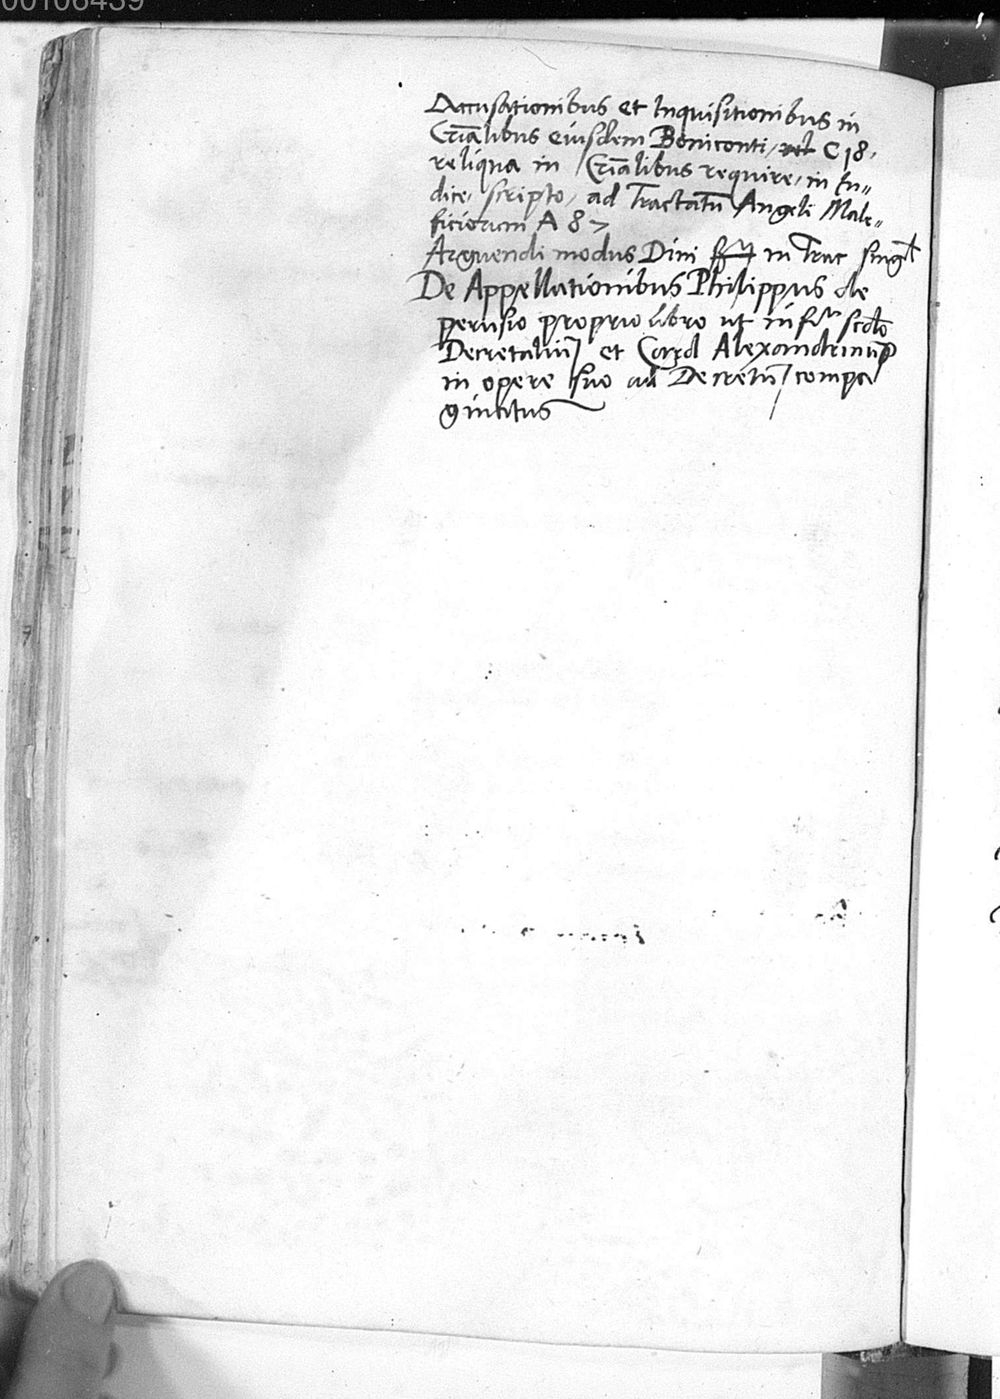 00106439
Accusationibus et Inquisitionibus in
Crīālibus eiusdem Boniconti, C 18,
reliqua in Crīālibus require, in In„
dice, scripto, ad Tractatū Angeli Male„
ficiorum A 87
Arguendi modus Dini in Trac singl
De Appellationibus Philippus de
perusio proprio libro ut in scdo
Decretaliū et Card Alexandrinus
in opere suo ad Decretū compa
ginatus